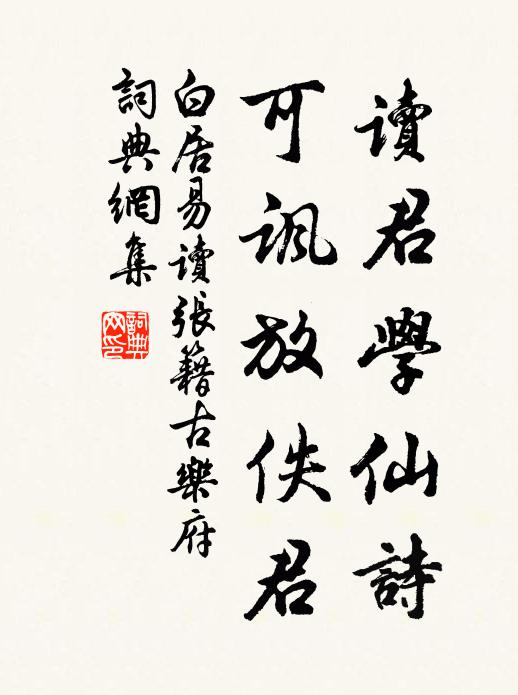 讀君學仙詩
可諷放佚君
白居易讀張籍古樂府
詞典網集
詞典
网印